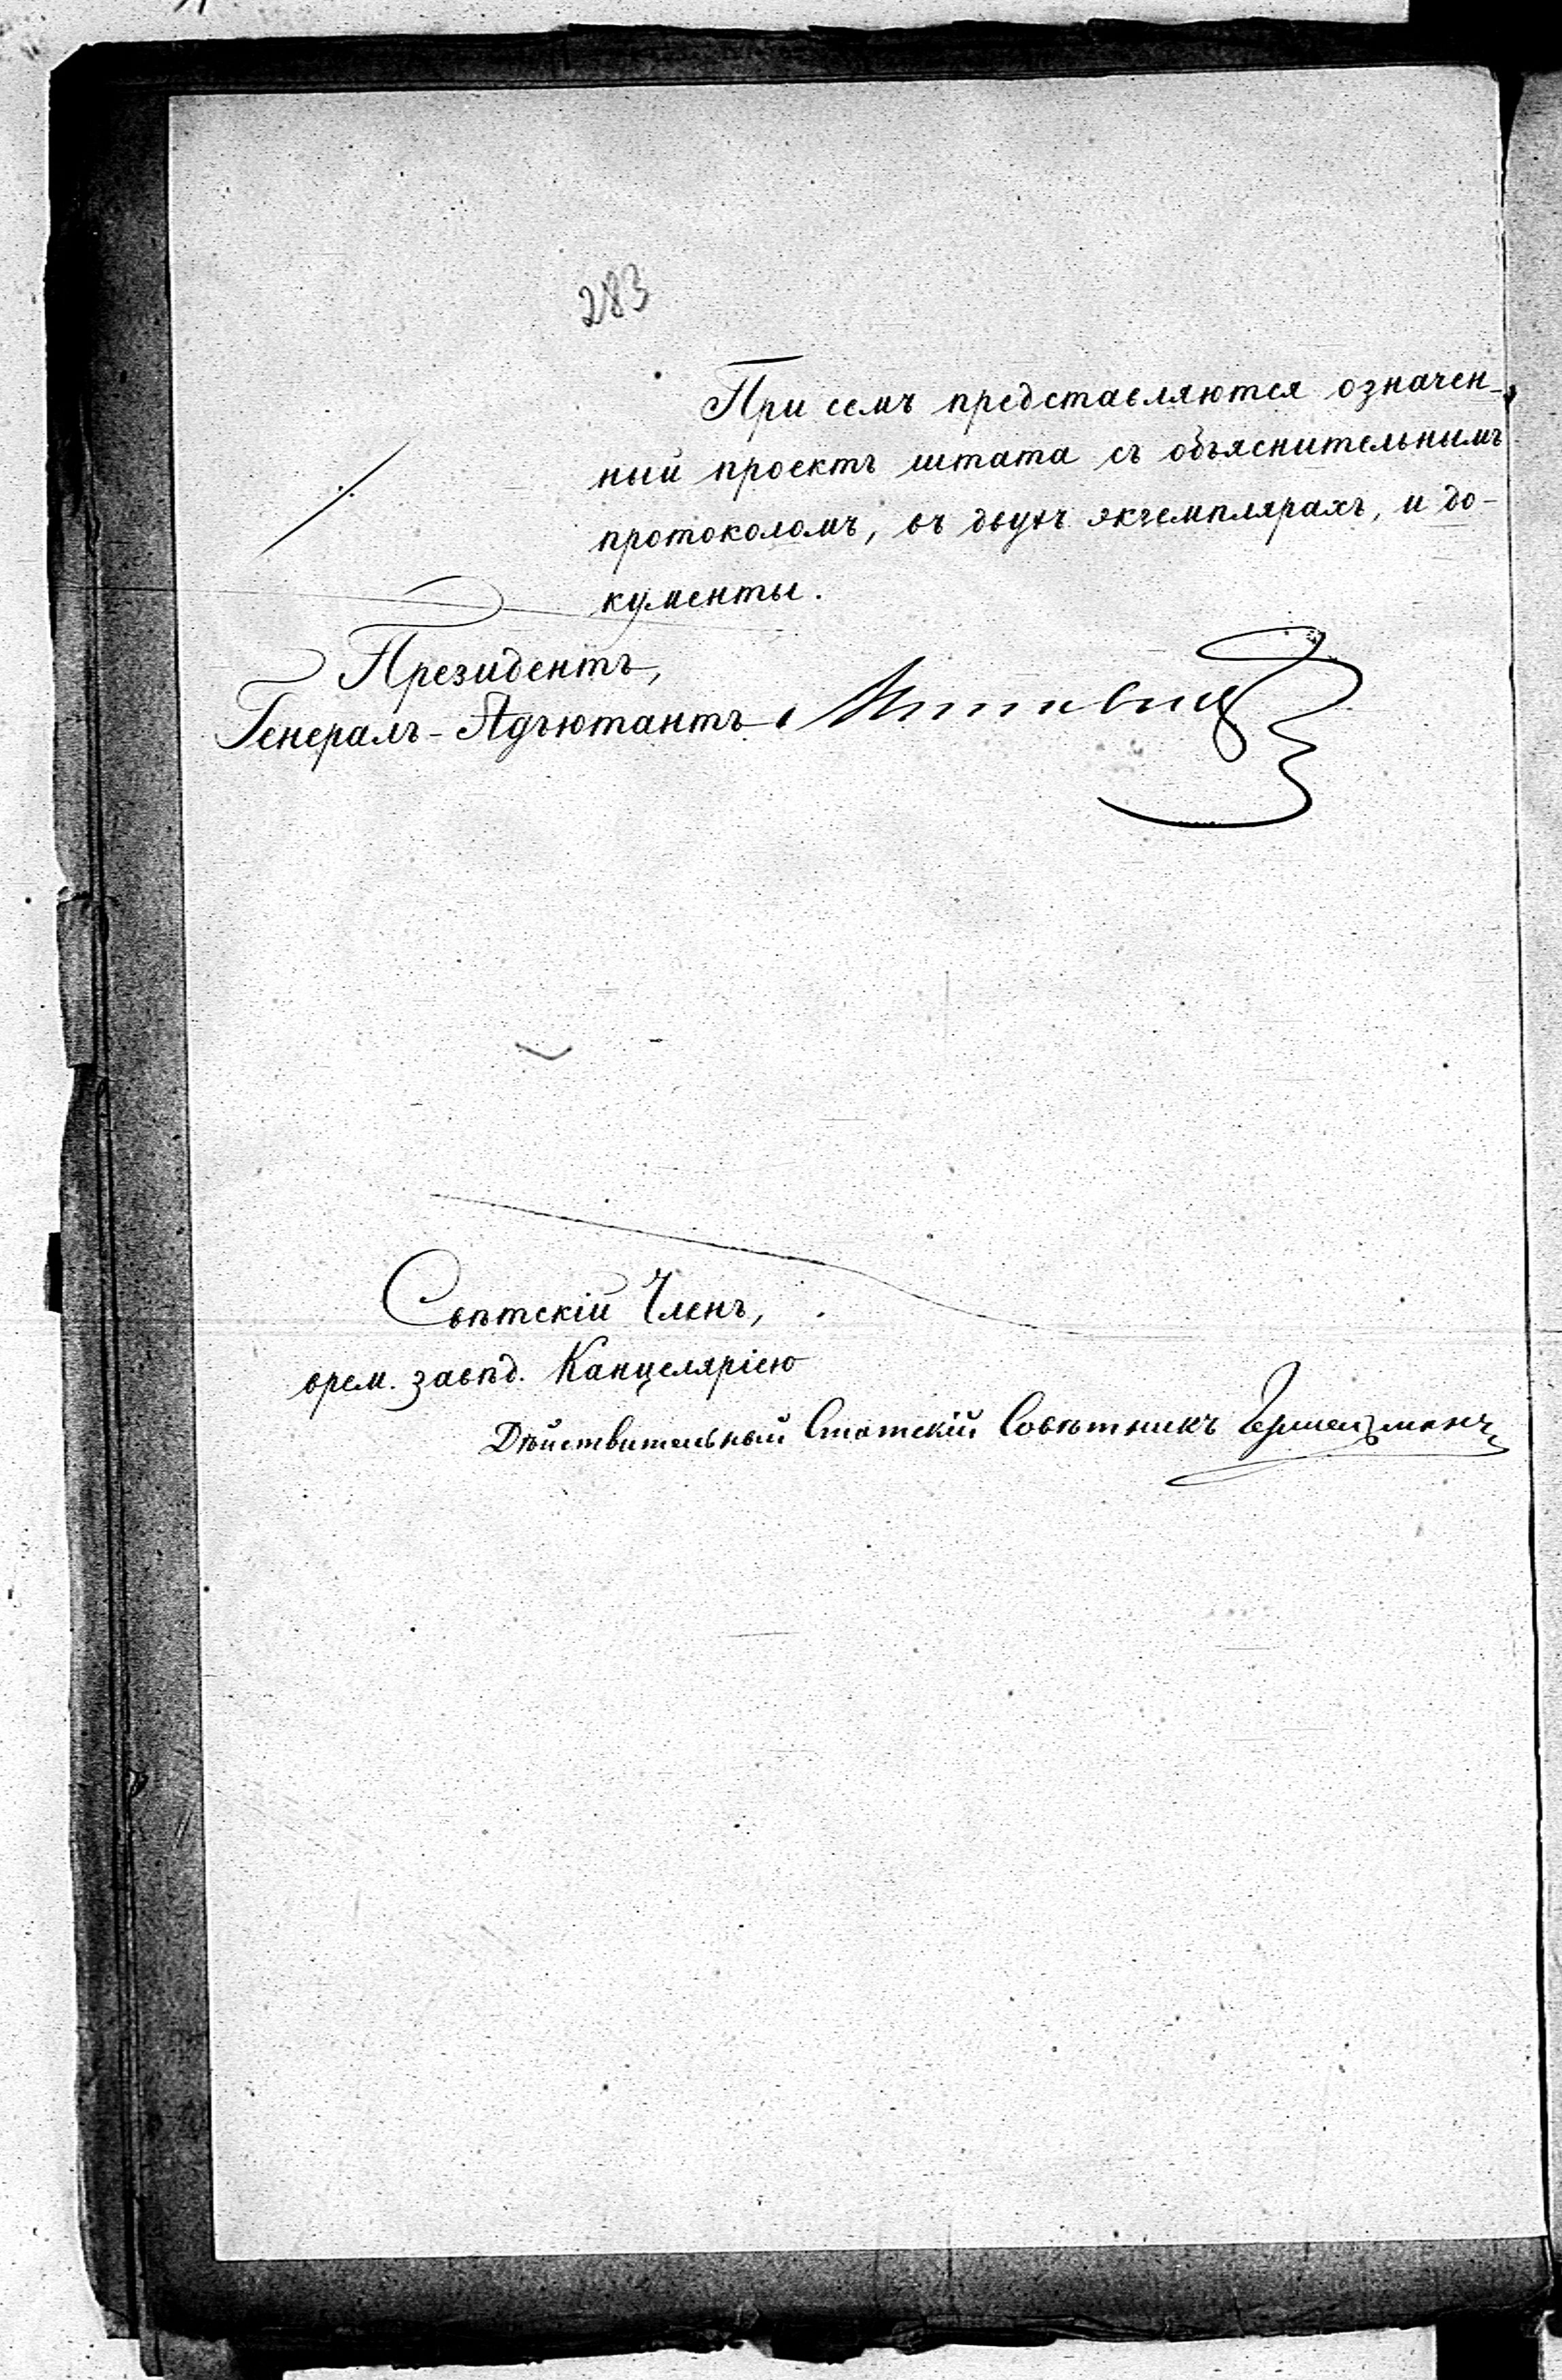 283
При семъ представляются означен-
ный проектъ штата съ объяснительнымъ
протоколомъ, въ двухъ экземплярахъ, и до-
кументы.
Президентъ,
Генералъ-Адъютантъ
Свѣтскій Членъ,
врем. завѣд. Канцеляріею
Дѣйствительный Статскій Совѣтникъ